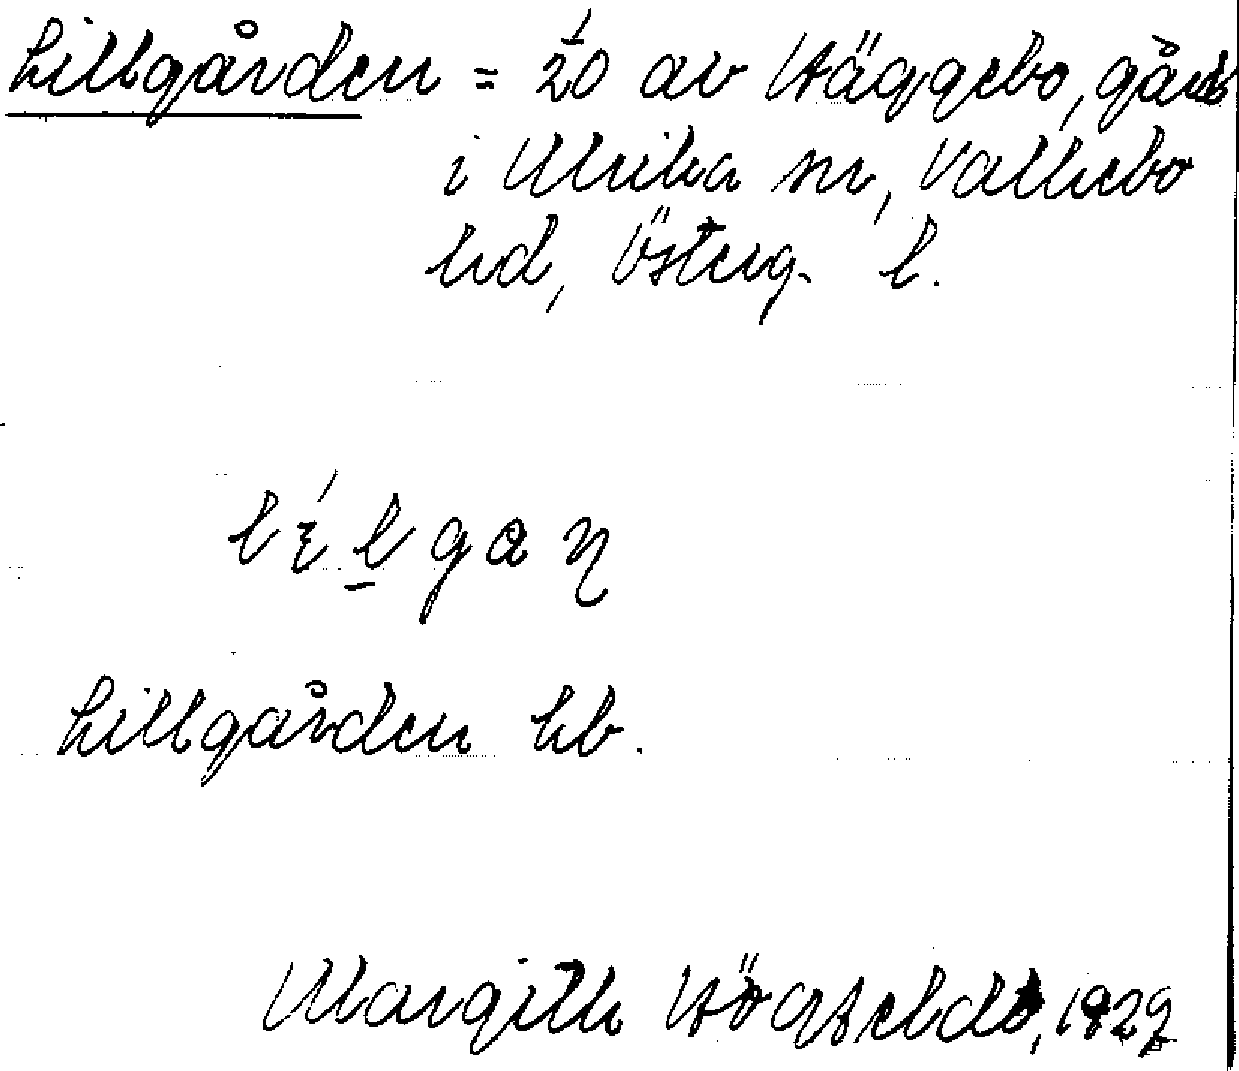 Lillgården = 2:0 av Häggebo, gård
i Ulrika sn, Valkebo
hd, Österg. l.
Lillgården kb.
Margith Högfeldt, 1929